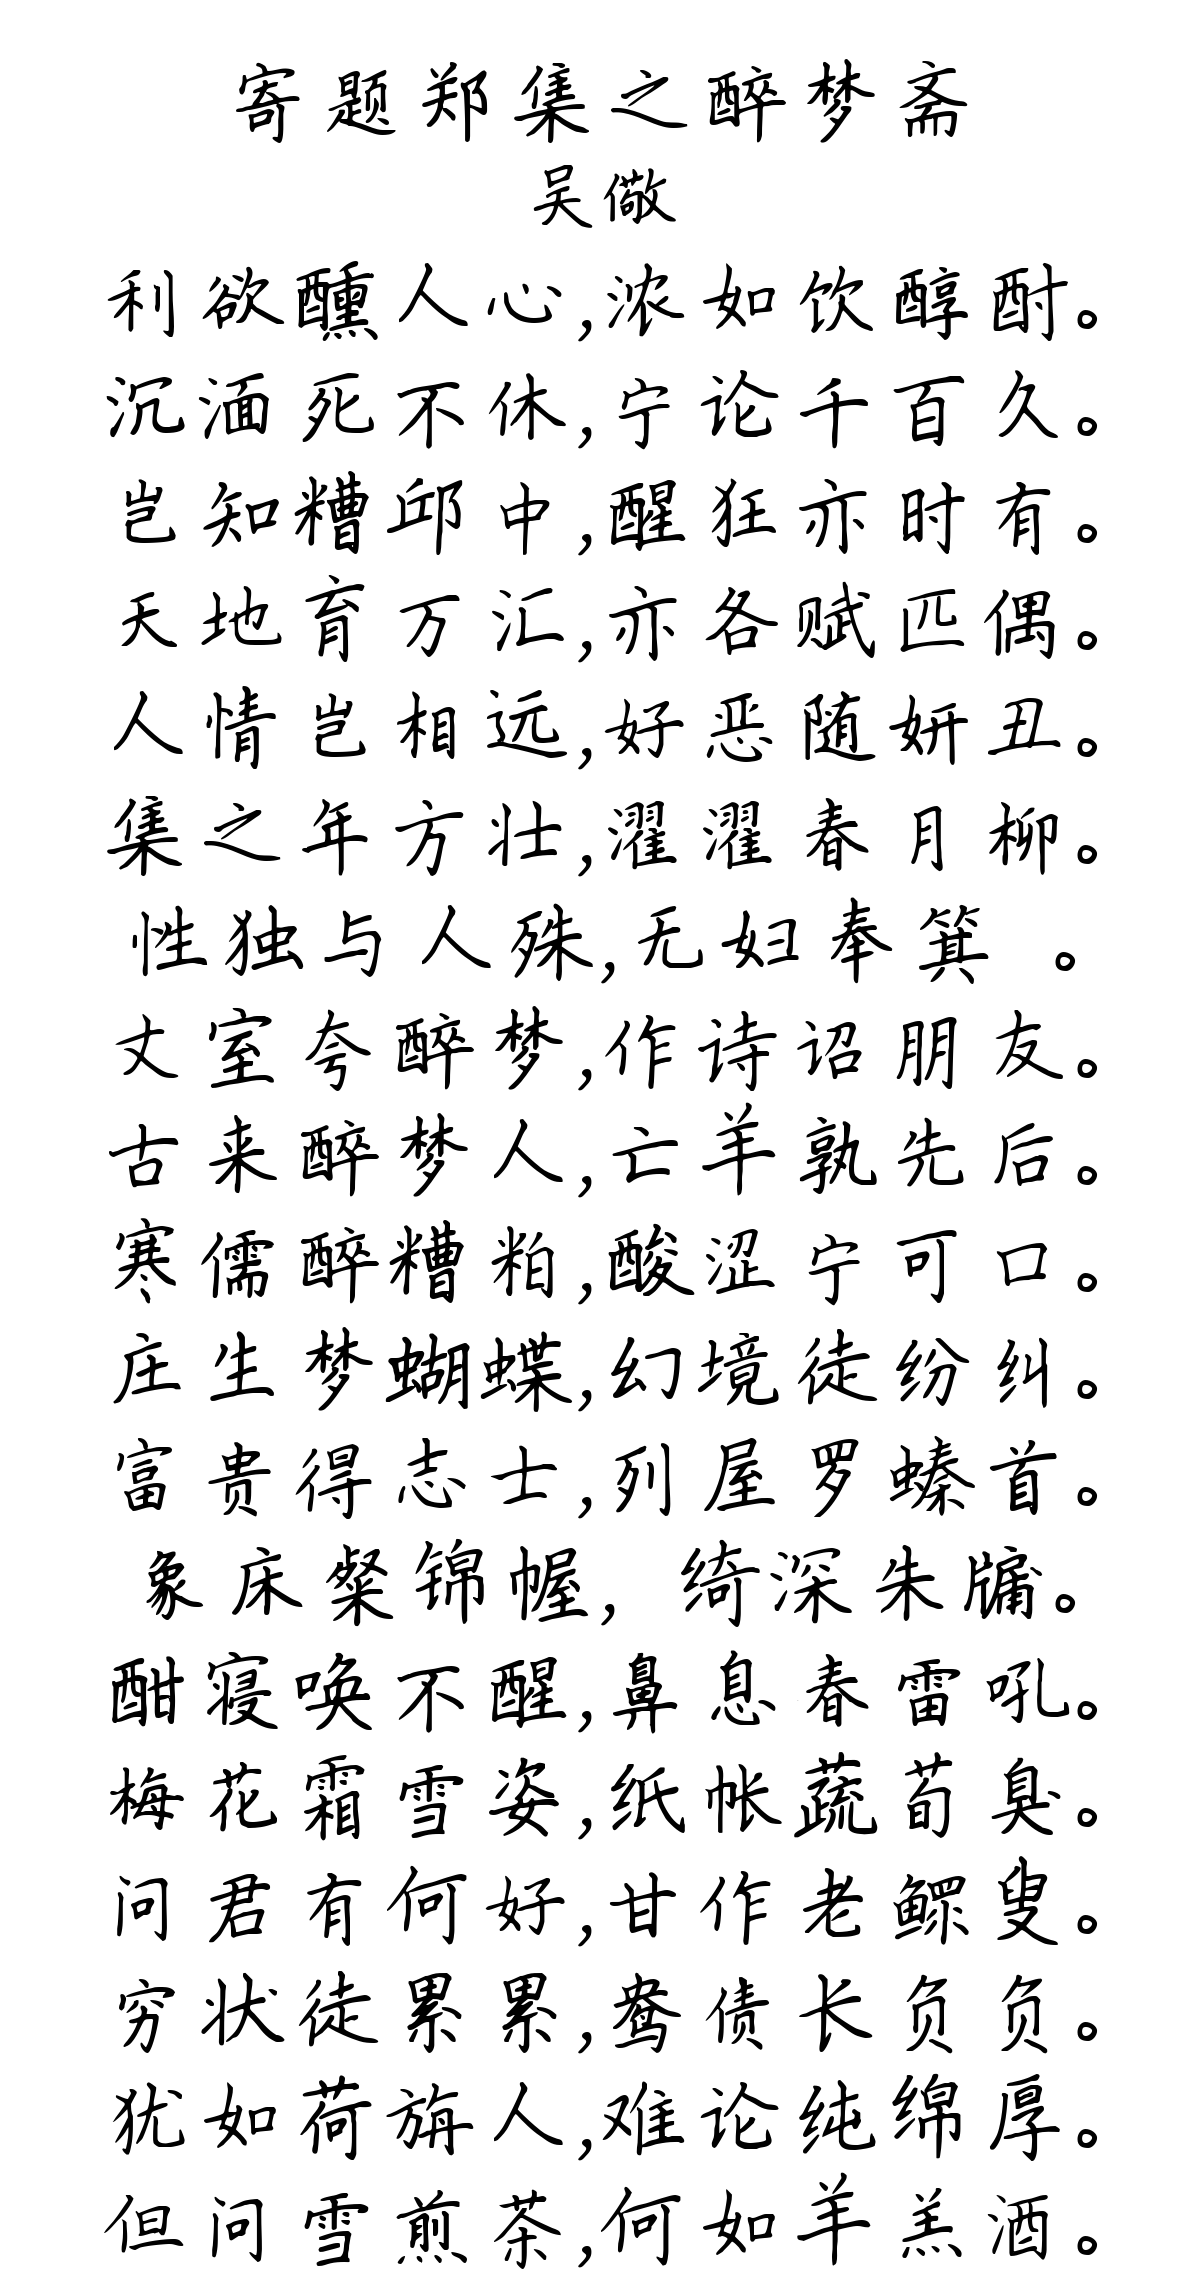 寄题郑集之醉梦斋
吴儆
利欲醺人心,浓如饮醇酎。
沉湎死不休,宁论千百久。
岂知糟邱中,醒狂亦时有。
天地育万汇,亦各赋匹偶。
人情岂相远,好恶随妍丑。
集之年方壮,濯濯春月柳。
性独与人殊,无妇奉箕 。
丈室夸醉梦,作诗诏朋友。
古来醉梦人,亡羊孰先后。
寒儒醉糟粕,酸涩宁可口。
庄生梦蝴蝶,幻境徒纷纠。
富贵得志士,列屋罗螓首。
象床粲锦幄, 绮深朱牖。
酣寝唤不醒,鼻息春雷吼。
梅花霜雪姿,纸帐蔬荀臭。
问君有何好,甘作老鳏叟。
穷状徒累累,鸯债长负负。
犹如荷旃人,难论纯绵厚。
但问雪煎茶,何如羊羔酒。